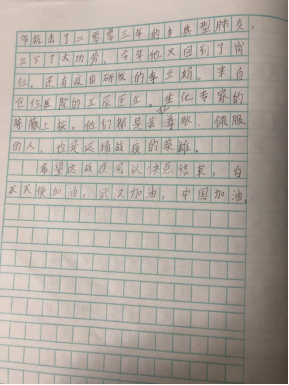 击出了二零零三年的非典型肺炎,
立下了大功劳。今年他又回到了岗
位。还有疫苗研发的李兰娟。来自
医院的工辰医生。生化专家的
陈薇上校。他们都是我尊敬、佩服
的人,也是这场战疫的英雄。
希望这战疫可以快点结束。白
衣天使加油,武汉加油,中国加油。